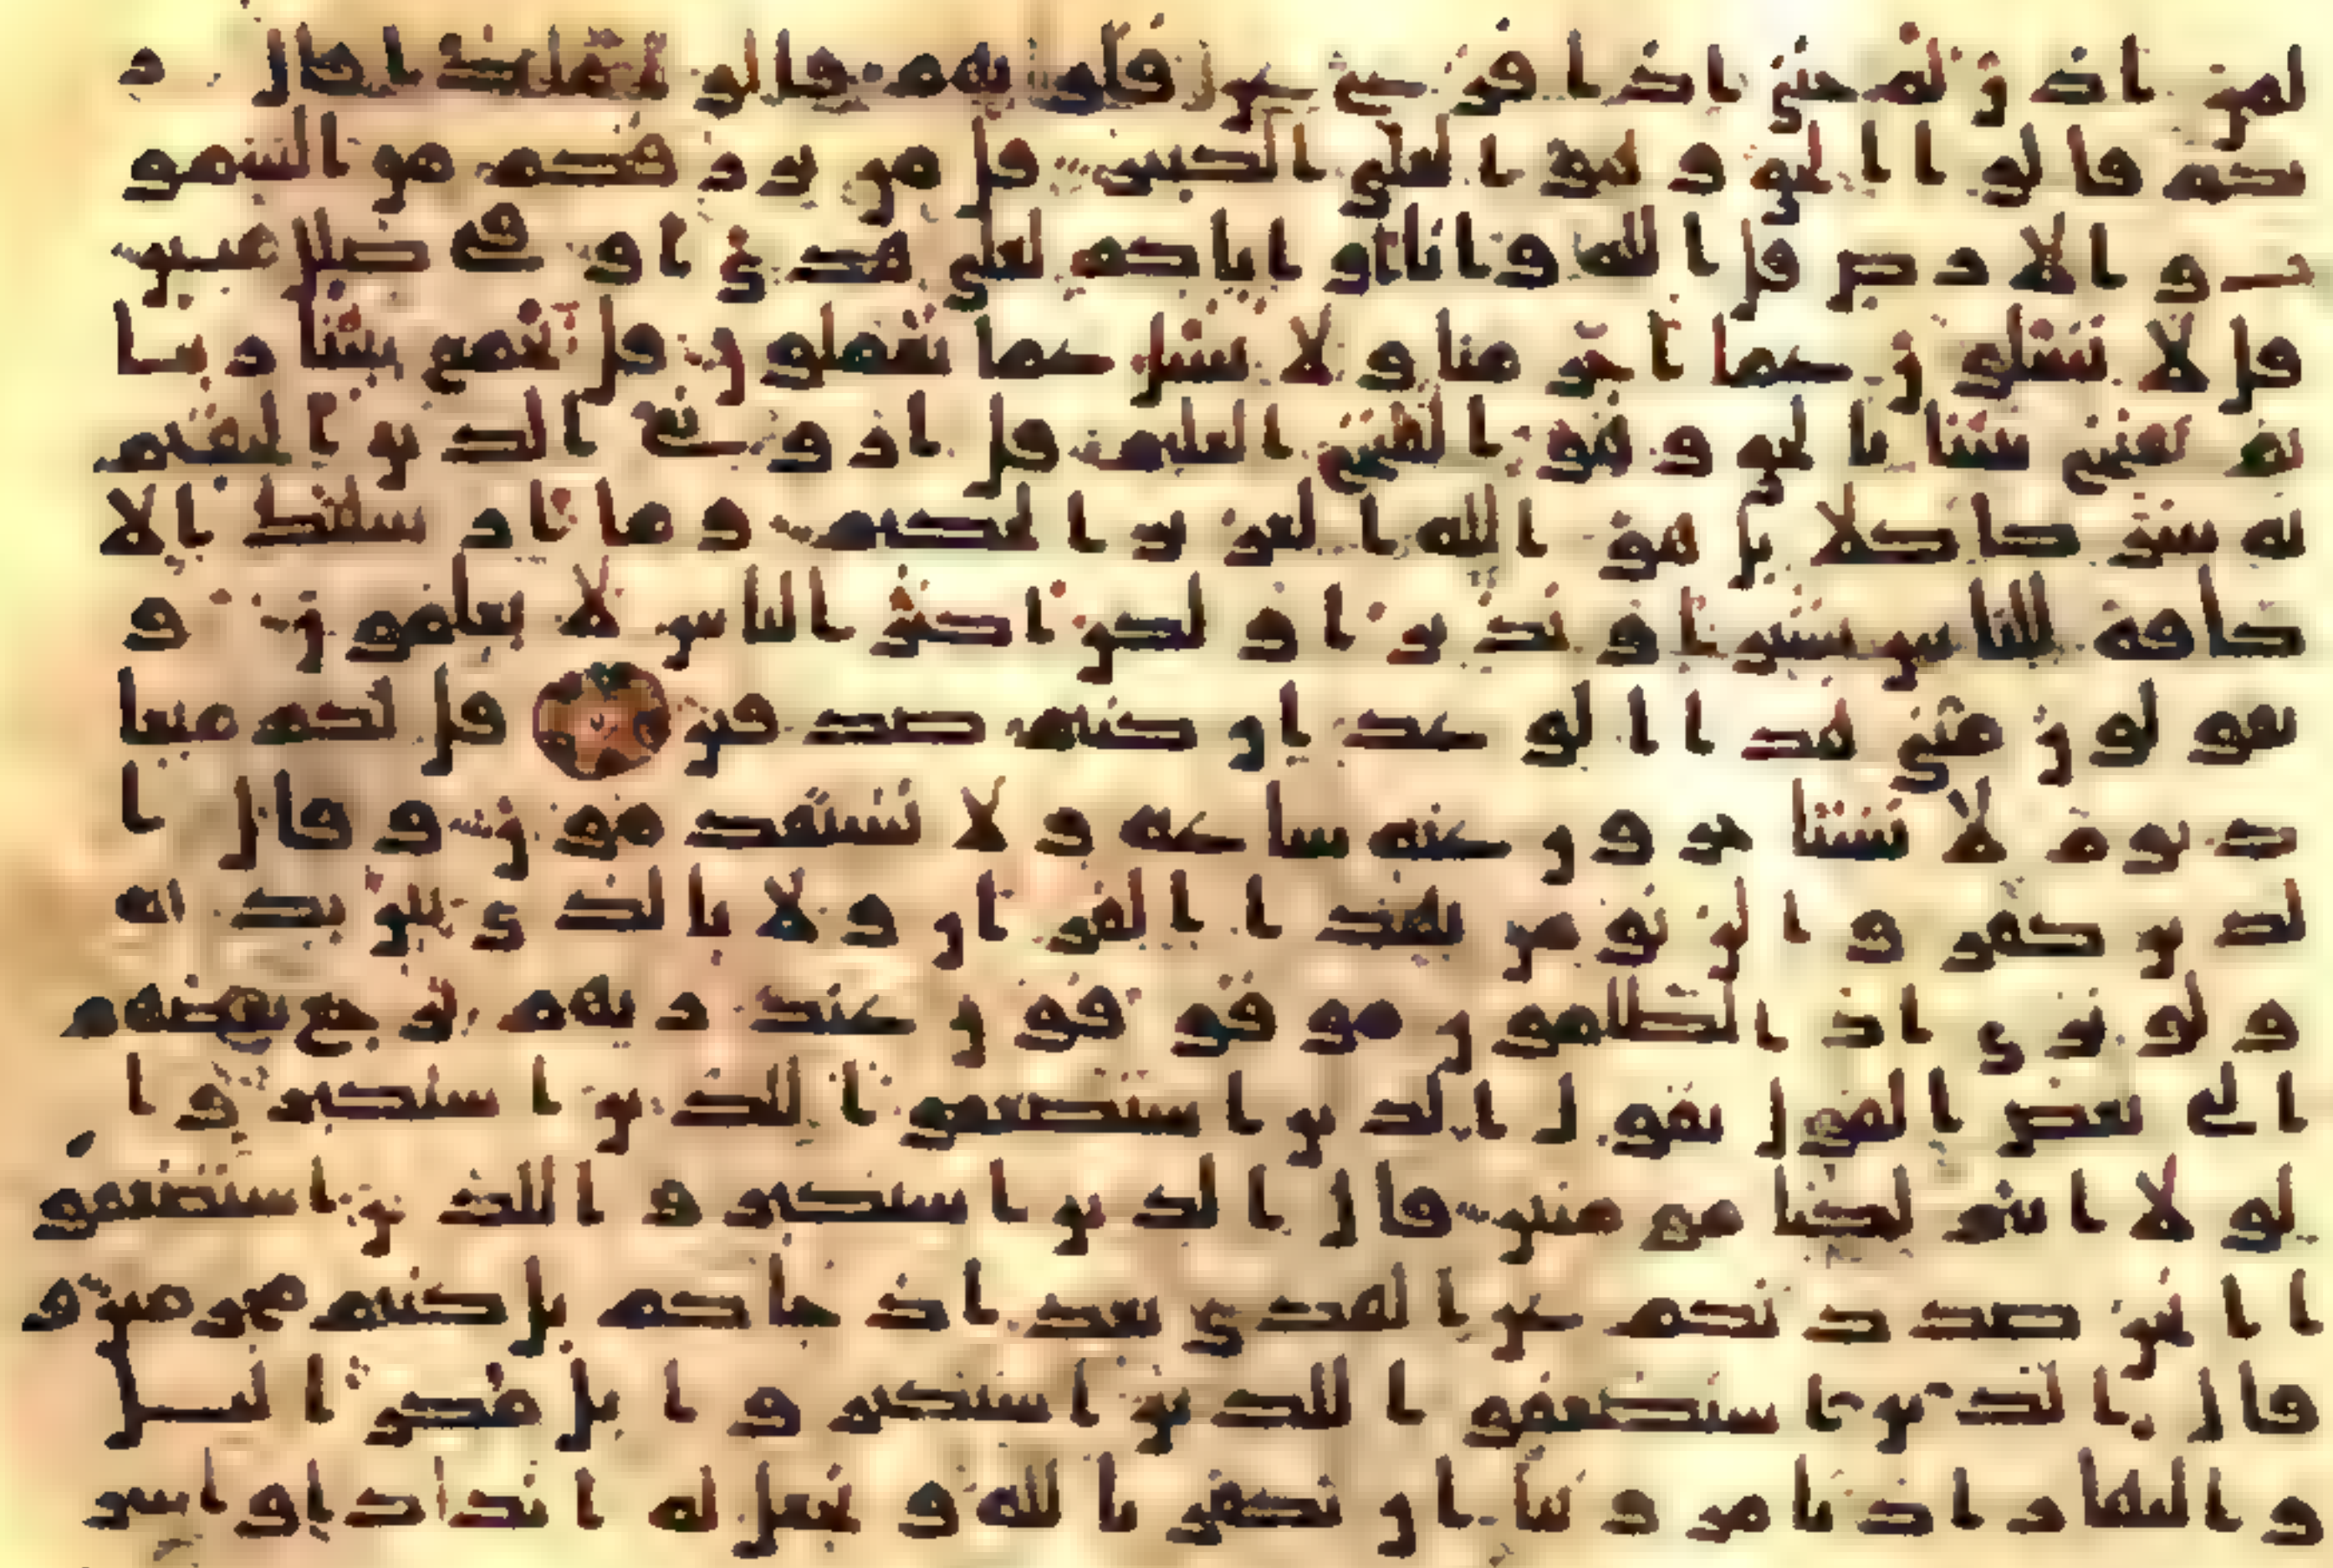 لمن اذن له حتى اذا فزع عن قلوبهم قالوا ماذا قال ر
بكم قالوا الحق وهو العلي الكبير قل من يرزقكم من السمو
ت والارض قل الله وانا او اياكم لعلى هدى او في ضلل مبين
قل لا تسلون عما اجرمنا ولا نسل عما تعملون قل يجمع بيننا ربنا
ثم يفتح بيننا بالحق وهو الفتح العليم قل اروني الذين الحقتم
به شركا كلا بل هو الله العزيز الحكيم وما ارسلنك الا
كافة للناس بشيرا ونذيرا ولكن اكثر الناس لا يعلمون و
يقولون متى هذا الوعد ان كنتم صدقين قل لكم ميعا
د يوم لا تستاخرون عنه ساعة ولا تستقدمون وقال ا
لذين كفروا لن نومن بهذا القران ولا بالذي بين يديه
ولو ترى اذ الظلمون موقوفون عند ربهم يرجع بعضهم
الى بعض القول يقول الذين استضعفوا للذين استكبروا
لولا انتم لكنا مومنين قال الذين استكبروا للذين استضعفو
ا انحن صددنكم عن الهدى بعد اذ جاكم بل كنتم مجرمين و
قال الذين استضعفوا للذين استكبروا بل مكر اليل
والنهار اذ تامروننا ان نكفر بالله ونجعل له اندادا واسر